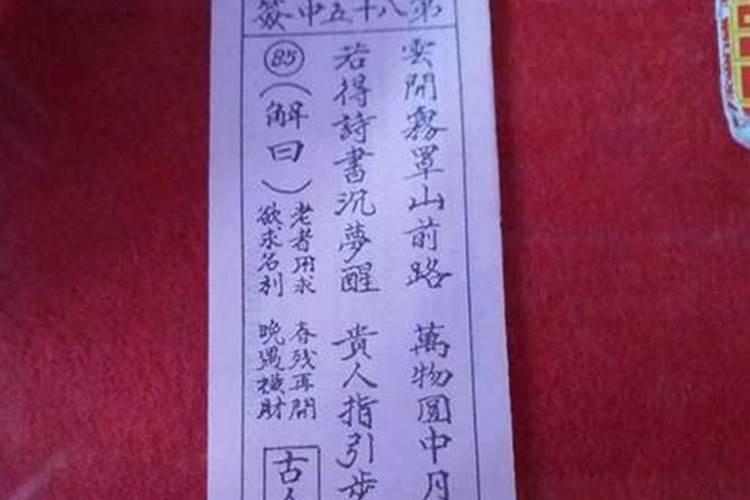 第八十五中簽
雲開霧罩山前路 萬物圓中月
若得詩書沉夢醒 貴人指引步
85（解曰）
老者用求 春残再開
欲求名利 晚遇橫財
古